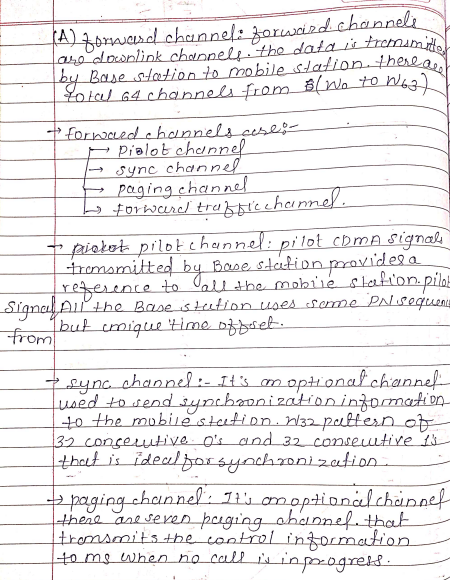 (A) forward channel: forward channels
are downlink channels. the data is transmitted
by Base station to mobile station. there are
total 64 channels from (W0 to W63)
→ forward channels are:-
→ Pilot channel
→ sync channel
→ paging channel
→ forward traffic channel.
→ pilot channel: pilot CDMA signal
transmitted by Base station provides a
reference to all the mobile station. pilot
Signal from All the Base station uses same PN sequence
but unique time offset.
→ sync channel:- It's an optional channel
used to send synchronization information
to the mobile station. W32 pattern of
32 consecutive 0's and 32 consecutive 1's
that is ideal for synchronization.
→ paging channel: It's an optional channel
there are seven paging channel. that
transmits the control information
to ms when no call is in progress.